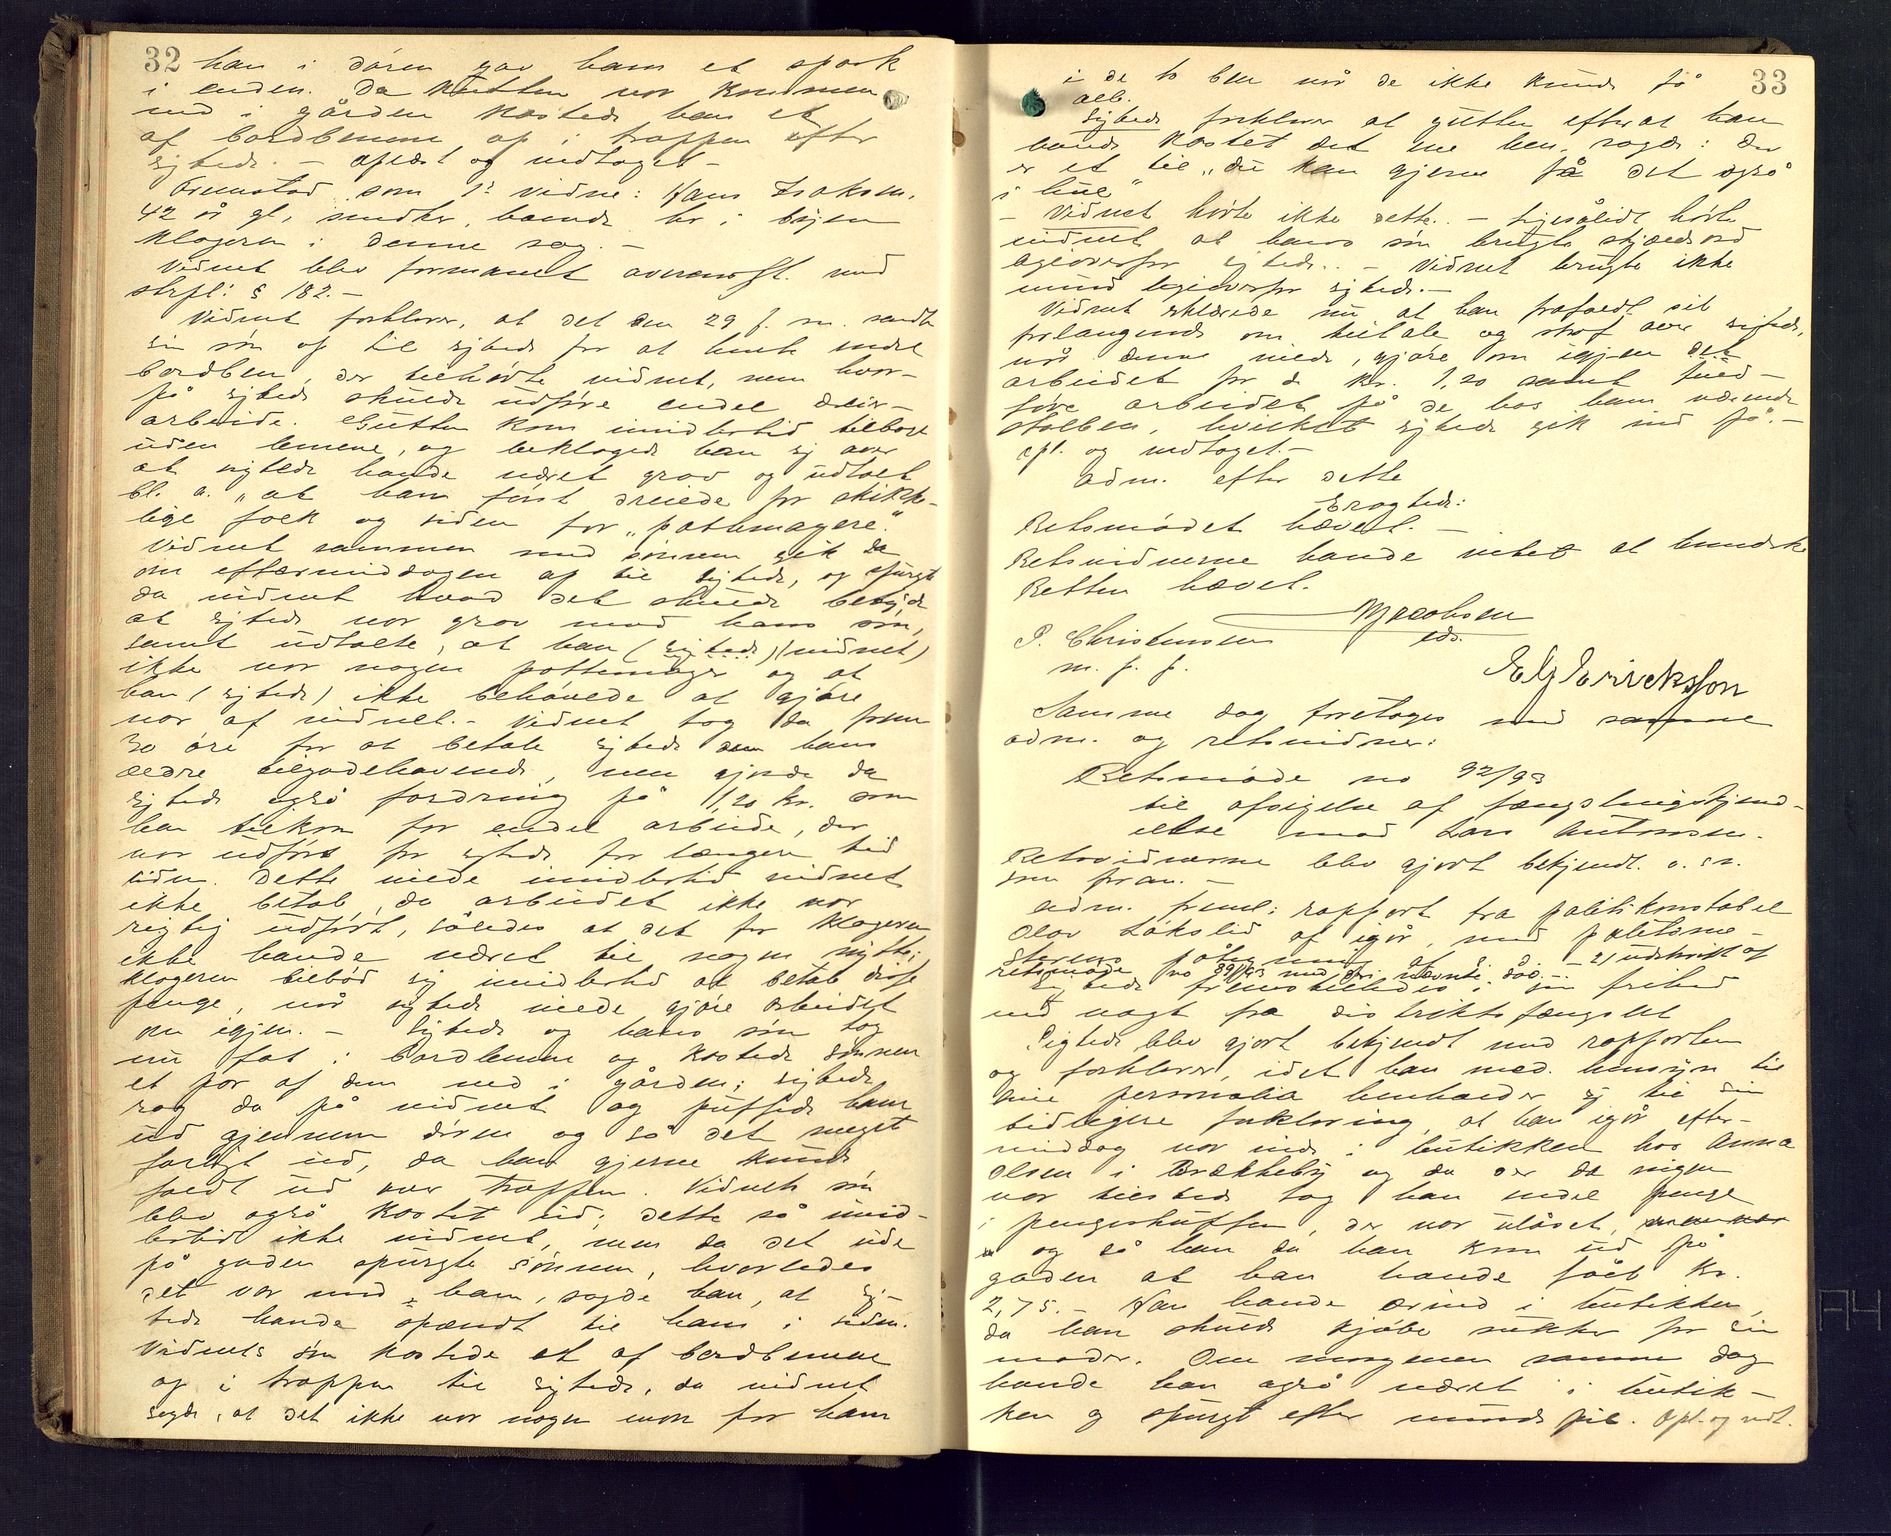 32
han i døren gav ham et spark
i enden. Da gutten var kommen
ned i gården kastede han et
af bordbenene op i trappen efter
sigtede. – oplæst og vedtaget –
Fremstod som 1ste vidne: Hans Isaksen,
42 år gl., snedker, boende her i byen
klageren i denne sag. –
Vidnet blev formanet overensst. med
strpl: § 182. –
Vidnet forklarer, at det den 29 f. m. sendte
sin søn op til sigtede for at hente endel
bordben, der tilhørte vidnet, men hvor-
på sigtede skulde udføre endel dreier-
arbeide. Gutten kom imidlertid tilbage
uden benene, og beklagede han sig over
at sigtede havde været grov og udtalt
bl. a. "at han først dreiede for skikke-
lige folk og siden for "pottemagere".
Vidnet sammen med sønnen gik da
om eftermiddagen op til sigtede, og spurgte
da vidnet hvad det skulde betyde
at sigtede var grov mod hans søn,
samt udtalte, at han (sigtede) (vidnet)
ikke var nogen pottemager og at
han (sigtede) ikke behøvede at gjøre
nar af vidnet. – Vidnet tog da frem
30 øre for at betale sigtede som hans
ældre tilgodehavende, men gjorde da
sigtede også fordring på 1,20 kr. som
han tilkom for endel arbeide, der
var udført for sigtede for længere tid
siden. Dette vilde imidlertid vidnet
ikke betale, da arbeidet ikke var
rigtig udført, således at det for klageren
ikke havde været til nogen nytte;
klageren tilbød sig imidlertid at betale disse
penge, når sigtede vilde gjøre arbeidet
om igjen. – Sigtede og hans søn tog
nu fat i bordbenene og kastede sønnen
et par af dem ned i gården; sigtede
røg da på vidnet og puffede ham
ud gjennem døren og så det meget
farligt ud, da han gjerne kunde
faldt ud over trappen. Vidnets søn
blev også kastet ud; dette så imid-
lertid ikke vidnet, men da det ude
på gaden spurgte sønnen, hvorledes
det var med ham, sagde han, at sig-
tede havde spændt til ham i siden.
Vidnets søn kastede et af bordbenene
op i trappen til sigtede, da vidnet
sagde, at det ikke var nogen mon for ham
33
i de to ben når de ikke kunde få
alle.
Sigtede forklarer at gutten efterat han
havde kastet det ene ben, sagde: der
er et til "du kan gjerne få det også
i hue"
– Vidnet hørte ikke dette. – Ligesålidt hørte
vidnet at hans søn brugte skjeldsord
ligeoverfor sigtede. – Vidnet brugte ikke
mund ligeoverfor sigtede. –
Vidnet erklærede nu at han frafaldt sit
forlangende om tiltale og straf over sigtede,
når denne vilde gjøre om igjen det
arbeidet for de kr. 1,20 samt fuld-
føre arbeidet på de hos ham værende
stolben, hvilket sigtede gik ind på. –
opl. og vedtaget. –
Adm. efter dette
Eragtede:
Retsmødet hævet. –
Retsvidnerne havde intet at bemærke
Retten hævet.
M Jacobsen
eds.
P. Christensen
m. f. f.
E G Ericksson
Samme dag foretoges med samme
adm. og retsvidner:
Retsmøde no 92/93
til afsigelse af fængslingskjend-
else mod Lars Antonsen.
Retsvidnerne blev gjort bekjendt o. s. v.
som foran. –
Adm. freml: rapport fra politikonstabel
Olav Løkslid af igår, med politime-
sterens påtegning af s. d. – 2) udskrift af
retsmøde no 39/93 med fri nævnte dåd. –
Sigtede fremstilledes i sin frihed
med vagt fra distriktsfængslet
Sigtede blev gjort bekjendt med rapporten
og forklarer, idet han med hensyn til
sine personalia henholder sig til sin
tidligere forklaring, at han igår efter-
middag var inde i butikken hos Anna
Olsen i Brækkeby og da der da ingen
var tilstede tog han endel penge
i pengeskuffen, der var ulåset,
og så han da han kom ud på
gaden at han havde fået kr.
2,75. – Han havde ærind i butikken,
da han skulde kjøbe sukker for sin
moder. Om morgenen samme dag
havde han også været i butik-
ken og spurgt efter mundspil. Opl. og vedt.